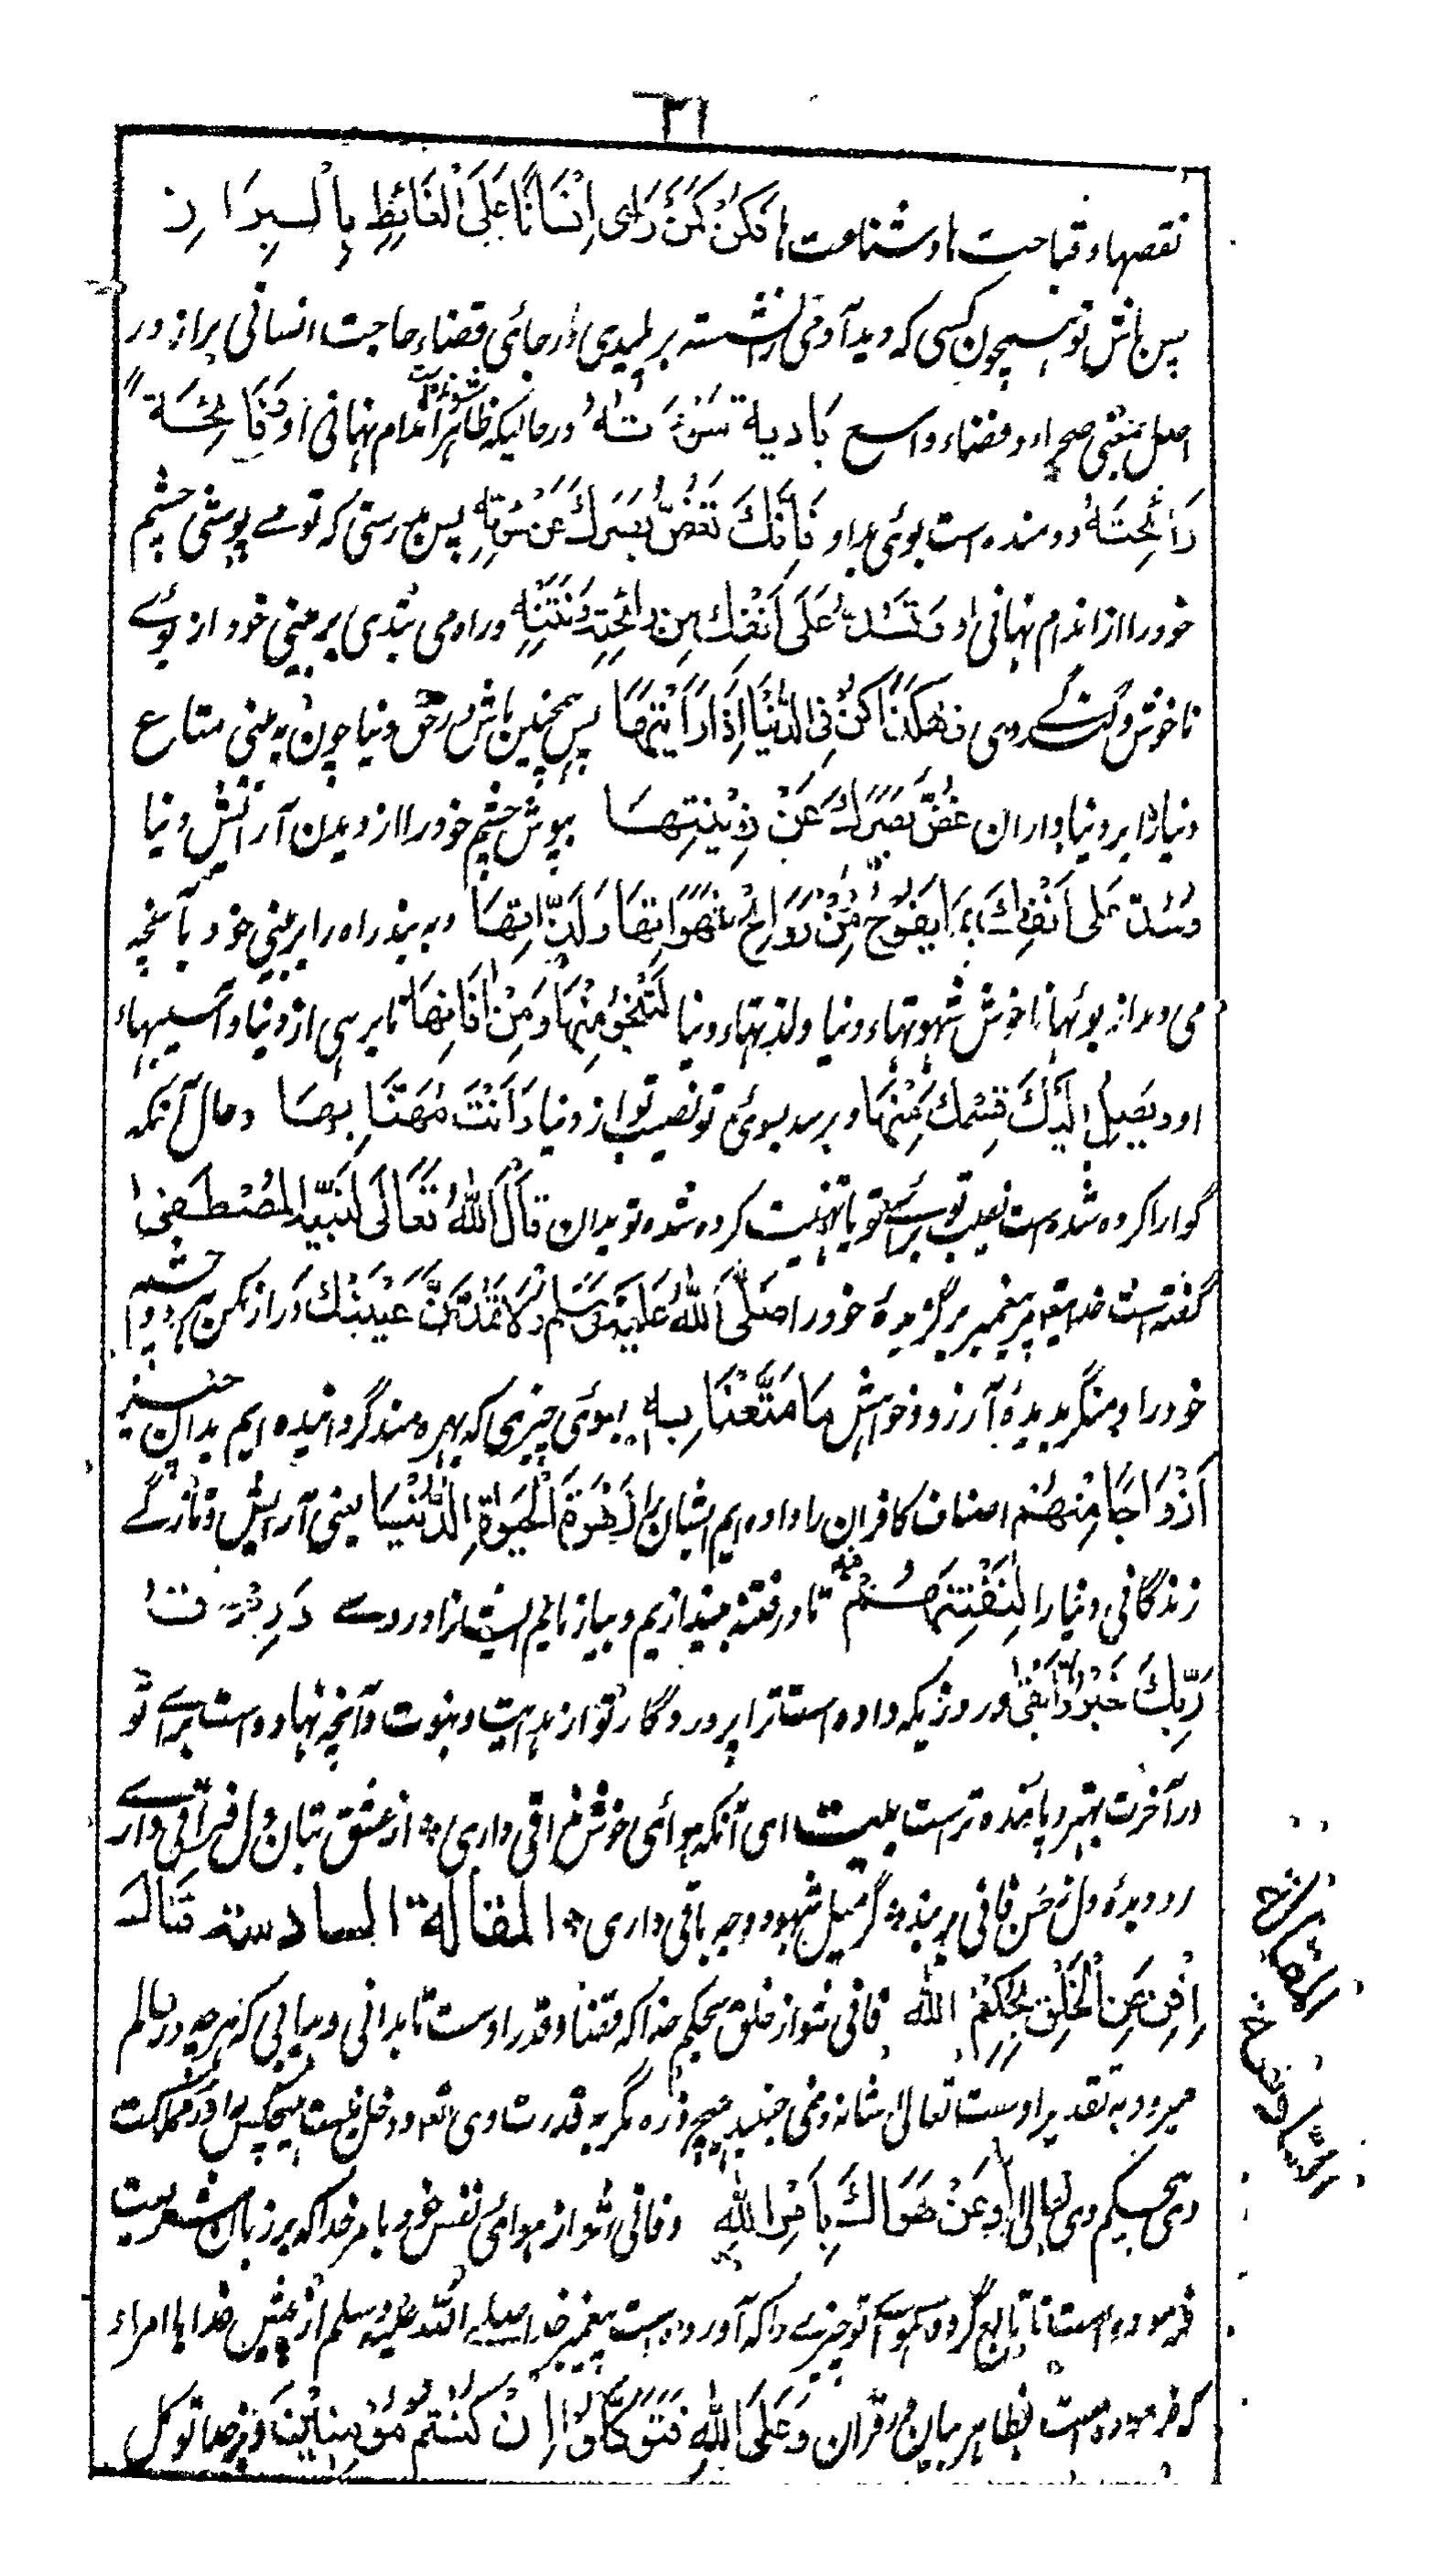 ٣١
نقصها و قباحت ها و شناعت ها فَكُنْ كَمَنْ رَاٰى اِنْسَانًا عَلَى الْغَائِطِ بِالْبِرَازِ
پس باش تو همچون کسی که دید آدمی را نشسته بر پلیدی در جائی قضاء حاجت انسانی براز در
اصل بمعنی صحراء و فضاء واسع بَادِيةً سَوْءَتُهُ در حالیکه ظاهر است اندام نهانی او وَفَائِحَةً
رَائِحَتُهُ و دمنده است بوئی بد او فَاِنَّكَ تَغُضُّ بَصَرَكَ عَنْ سَوْأَتِهِ پس بدرستی که تو مے پوشی چشم
خود را از اندام نهانی او وَتَسُدُّ عَلٰى اَنْفِكَ مِنْ رَائِحَتِهِ وَنَتْنِهِ و راه می بندی بر بینی خود از بوئے
ناخوش و گندگے وی فَهٰكَذَا كُنْ فِى الدُّنْيَا اِذَا رَاَيْتَهَا پس همچنین باش در حق دنیا چون به بینی متاع
دنیا را بر دنیاداران غُضَّ بَصَرَكَ عَنْ زِيْنَتِهَا بپوش چشم خود را از دیدن آرایش دنیا
وَسُدَّ عَلٰى اَنْفِكَ مِمَّا يَفُوْحُ مِنْ رَوَائِحِ شَهَوَاتِهَا وَلَذَّاتِهَا و به بند راه را بر بینی خود بآنچه
می دمد از بوئها ناخوش شهوتهاء دنیا و لذتهاء دنیا لِتَنْجُوَ مِنْهَا وَمِنْ اٰفَاتِهَا تا برهی از دنیا و آسیبهاء
او وَيَصِلُ اِلَيْكَ قِسْمُكَ مِنْهَا و برسد بسوئی تو نصیب تو از دنیا وَاَنْتَ مُهَنًّا بِهَا و حال آنکه
گوارا کرده شده است نصیب تو برائے تو یا تهنیت کرده شده تو بدان قَالَ اللّٰهُ تَعَالٰى لِنَبِيِّهِ الْمُصْطَفٰى
گفته است خدایتعالی مر پیغمبر برگزیدهٔ خود را صَلَّى اللّٰهُ عَلَيْهِ وَسَلَّمَ وَلَا تَمُدَّنَّ عَيْنَيْكَ دراز مکن هر دو چشم
خود را و منگر بدیدهٔ آرزو و خواهش مَا مَتَّعْنَا بِهٖ بسوئی چیزی که بهره مند گردانیده ایم بدان چیز
اَزْوَاجًا مِنْهُمْ اصناف کافران را و داده ایم ایشان را زَهْرَةَ الْحَيٰوةِ الدُّنْيَا یعنی آرایش و تازگے
زندگانی دنیا را لِنَفْتِنَهُمْ فِيْهِ تا در فتنه بیندازیم و بیازمائیم ایشانرا در وے وَرِزْقُ
رَبِّكَ خَيْرٌ وَّاَبْقٰى و روزیکه داده است ترا پروردگار تو از هدایت و نبوت و آنچه نهاده است برائے تو
در آخرت بهتر و پاینده تر است بیت ای آنکه هوائی خوش مراقی داری ٭ از عشق بتان دل فراقی داری
رو دیدهٔ دل ز حسن فانی بر بند ٭ گر میل شهود وجه باقی داری ٭ المقالة السادسة قَالَ
اِفْنِ عَنِ الْخَلْقِ بِحُكْمِ اللّٰه فانی شو از خلق بحکم خدا که قضا و قدر اوست تا بدانی و بیابی که هر چه در عالم
میرود به تقدیر اوست تعالیٰ شانه و نمی جنبد هیچ ذره مگر به قدرت وی تعه و دخل نیست هیچکس را در مملکت
وی بحکم وی تعالیٰ وَعَنْ هَوَاكَ بِاَمْرِ اللّٰهِ و فانی شو از هوائی نفس خود بامر خدا که بر زبان شریعت
فرموده است تا تابع گردد هوائے تو چیزے را که آورده است پیغمبر خدا صلے اللّٰه علیه وسلم از پیش خدا یا امراء
که فرموده است بظاهر بیان در قرآن وَعَلَى اللّٰهِ فَتَوَكَّلُوْا اِنْ كُنْتُمْ مُؤْمِنِيْنَ و بر خدا توکل